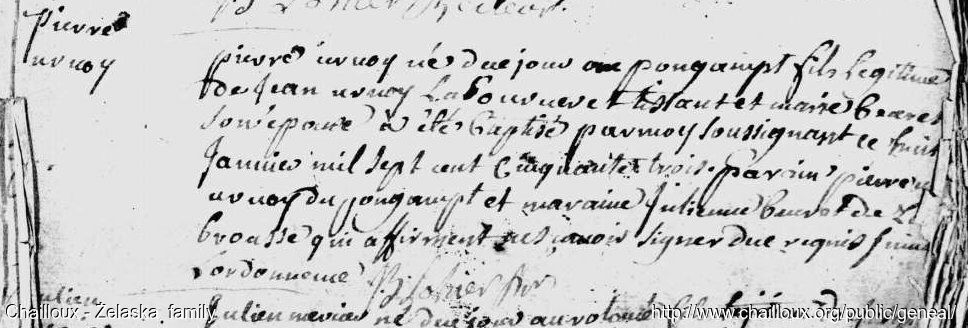 Recteur.
pierre
urvoy
pierre urvoy né du jour au pongampt fils legitime
de Jean urvoy Laboureur et tissant et marie beuret
son épouse à été baptisé par moy soussignant ce huit
Janvier mil sept cent cinquante trois. parain pierre
urvoy du pongampt et maraine Julienne beuret de la
brousse qui affirment ne scavoir signer due requis suivant
Lordonnence
Julien
Julien né du jour au
Chailloux - Zelaska family
http://www.chailloux.org/public/geneal/